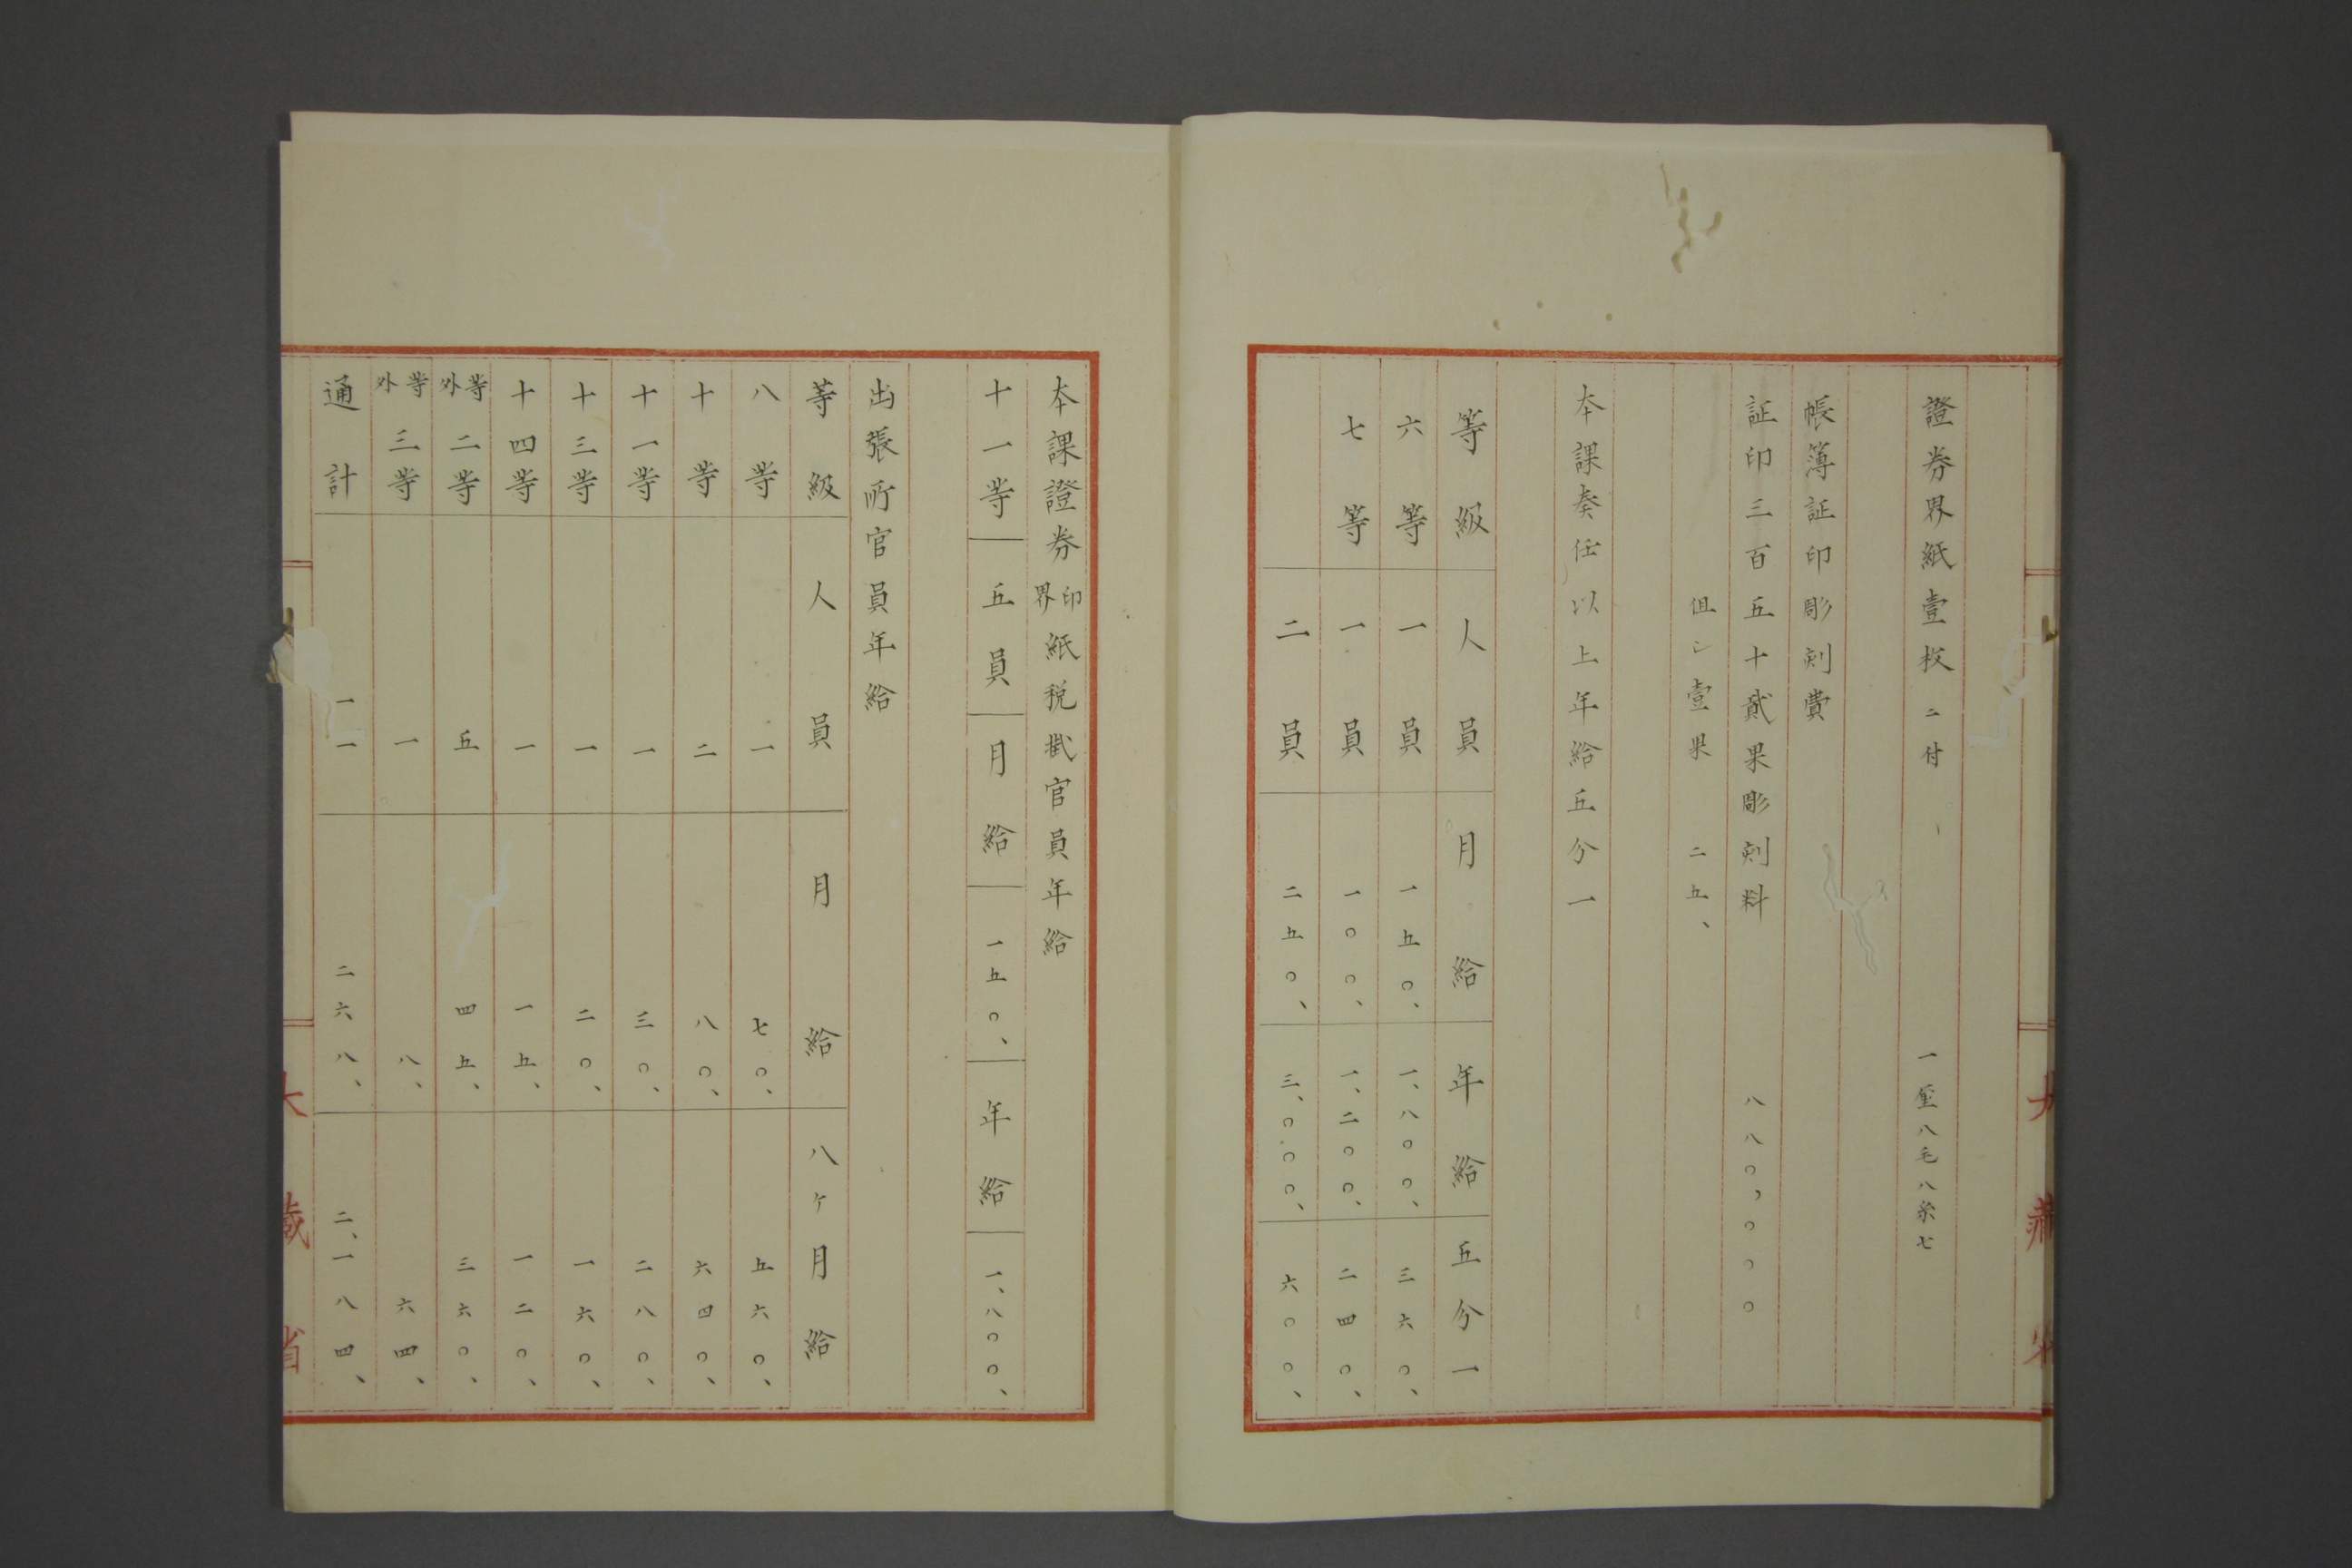 證券界紙壹枚ニ付 一厘八毛八糸七
帳簿証印彫刻費
証印三百五十貳果彫刻料 八八〇,〇〇〇
但シ壹果 二五、
本課奏任以上年給五分一
等級 人員 月給 年給 五分一
六等 一員 一五〇、 一、八〇〇、 三六〇、
七等 一員 一〇〇、 一、二〇〇、 二四〇、
二員 二五〇、 三、〇〇〇、 六〇〇、
本課證券印界紙税掛官員年給
十一等 五員 月給 一五〇、 年給 一、八〇〇、
出張所官員年給
等級 人員 月給 八ヶ月給
八等 一 七〇、 五六〇、
十等 二 八〇、 六四〇、
十一等 一 三〇、 二八〇、
十三等 一 二〇、 一六〇、
十四等 一 一五、 一二〇、
等外二等 五 四五、 三六〇、
等外三等 一 八、 六四、
通計 一一 二六八、 二、一八四、
大藏省